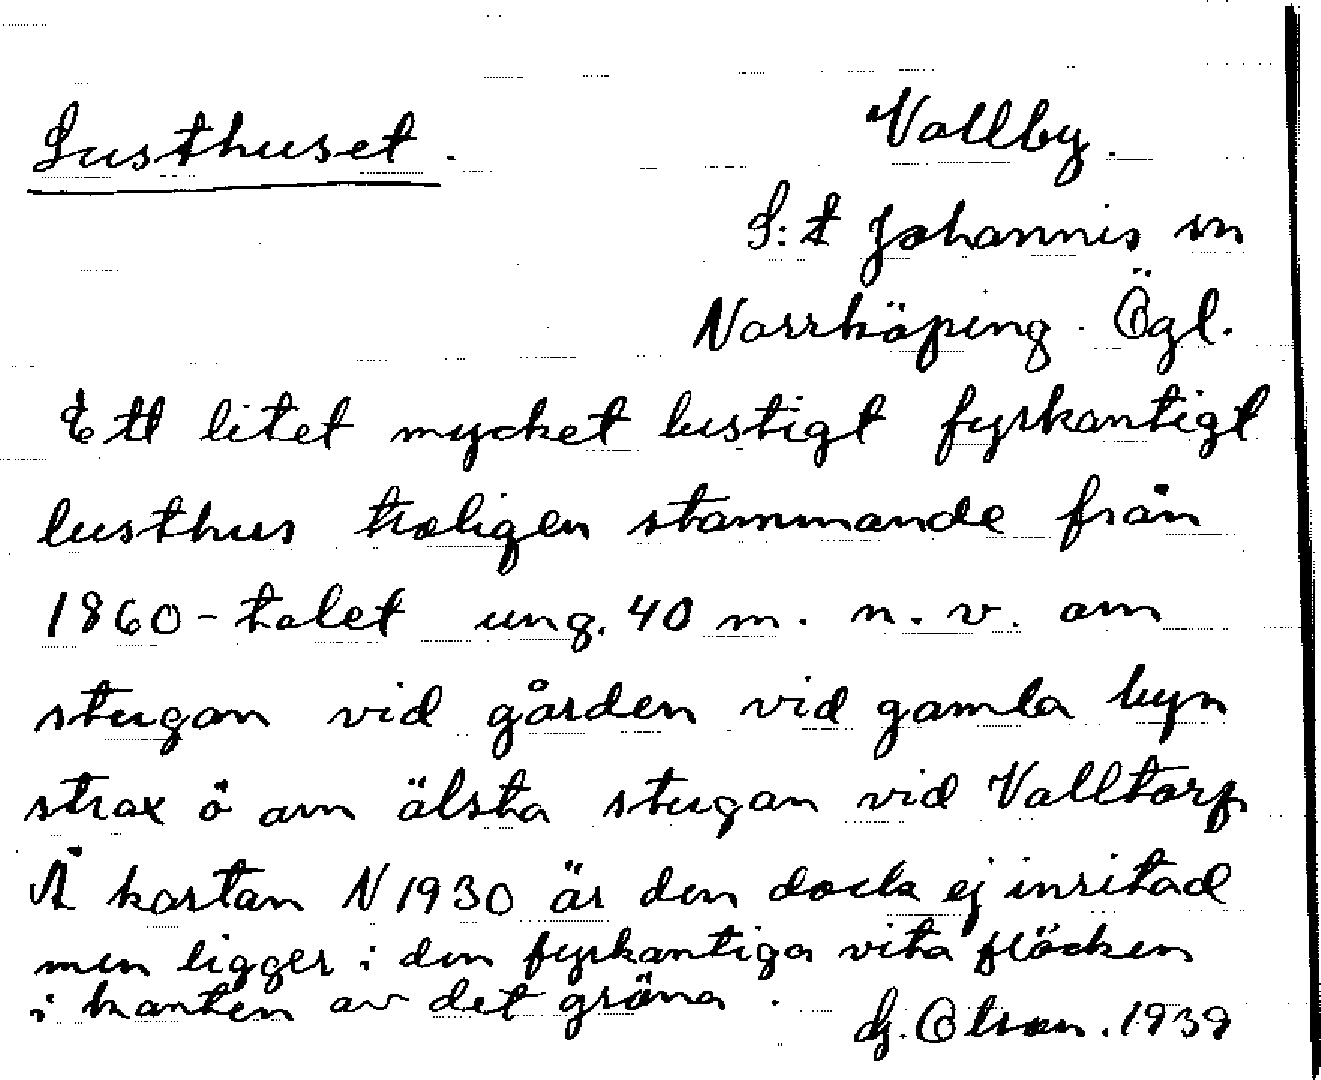 Lusthuset.
Vallby.
S:t Johannis sn
Norrköping. Ögl.
Ett litet mycket lustigt fyrkantigt
lusthus troligen stammande från
1860-talet ung. 40 m. n.v. om
stugan vid gården vid gamla byn
strax ö om älsta stugan vid Valltorp
Å kartan N 1930 är den dock ej inritad
men ligger i den fyrkantiga vita fläcken
i kanten av det gröna.
1939